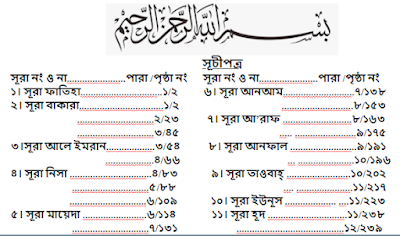 بسم الله الرحمن الرحيم
সূচীপত্র
সূরা নং ও না.....................পারা /পৃষ্ঠা নং
১। সূরা ফাতিহা.........................১/২
২। সূরা বাকারা..........................১/২
.......................২/২৩
.......................৩/৪৫
৩।সূরা আলে ইমরান................৩/৫৪
.......................৪/৬৬
৪। সূরা নিসা .......................৪/৮৩
.......................৫/৮৮
.......................৬/১০৯
৫। সূরা মায়েদা .....................৬/১১৪
.......................৭/১৩১
সূরা নং ও না.....................পারা /পৃষ্ঠা নং
৬। সূরা আনআম ..................৭/১৩৮
.......................৮/১৫৩
৭। সূরা আ'রাফ ...................৮/১৬৩
.... .....................৯/১৭৫
৮। সূরা আনফাল ..................৯/১৯১
.... ..................১০/১৯৬
৯। সূরা তাওবাহ্ .................১০/২০২
.... ....................১১/২১৭
১০। সূরা ইউনূস ........... .....১১/২২৩
১১। সূরা হূদ .....................১১/২৩৮
.......................১২/২৩৯